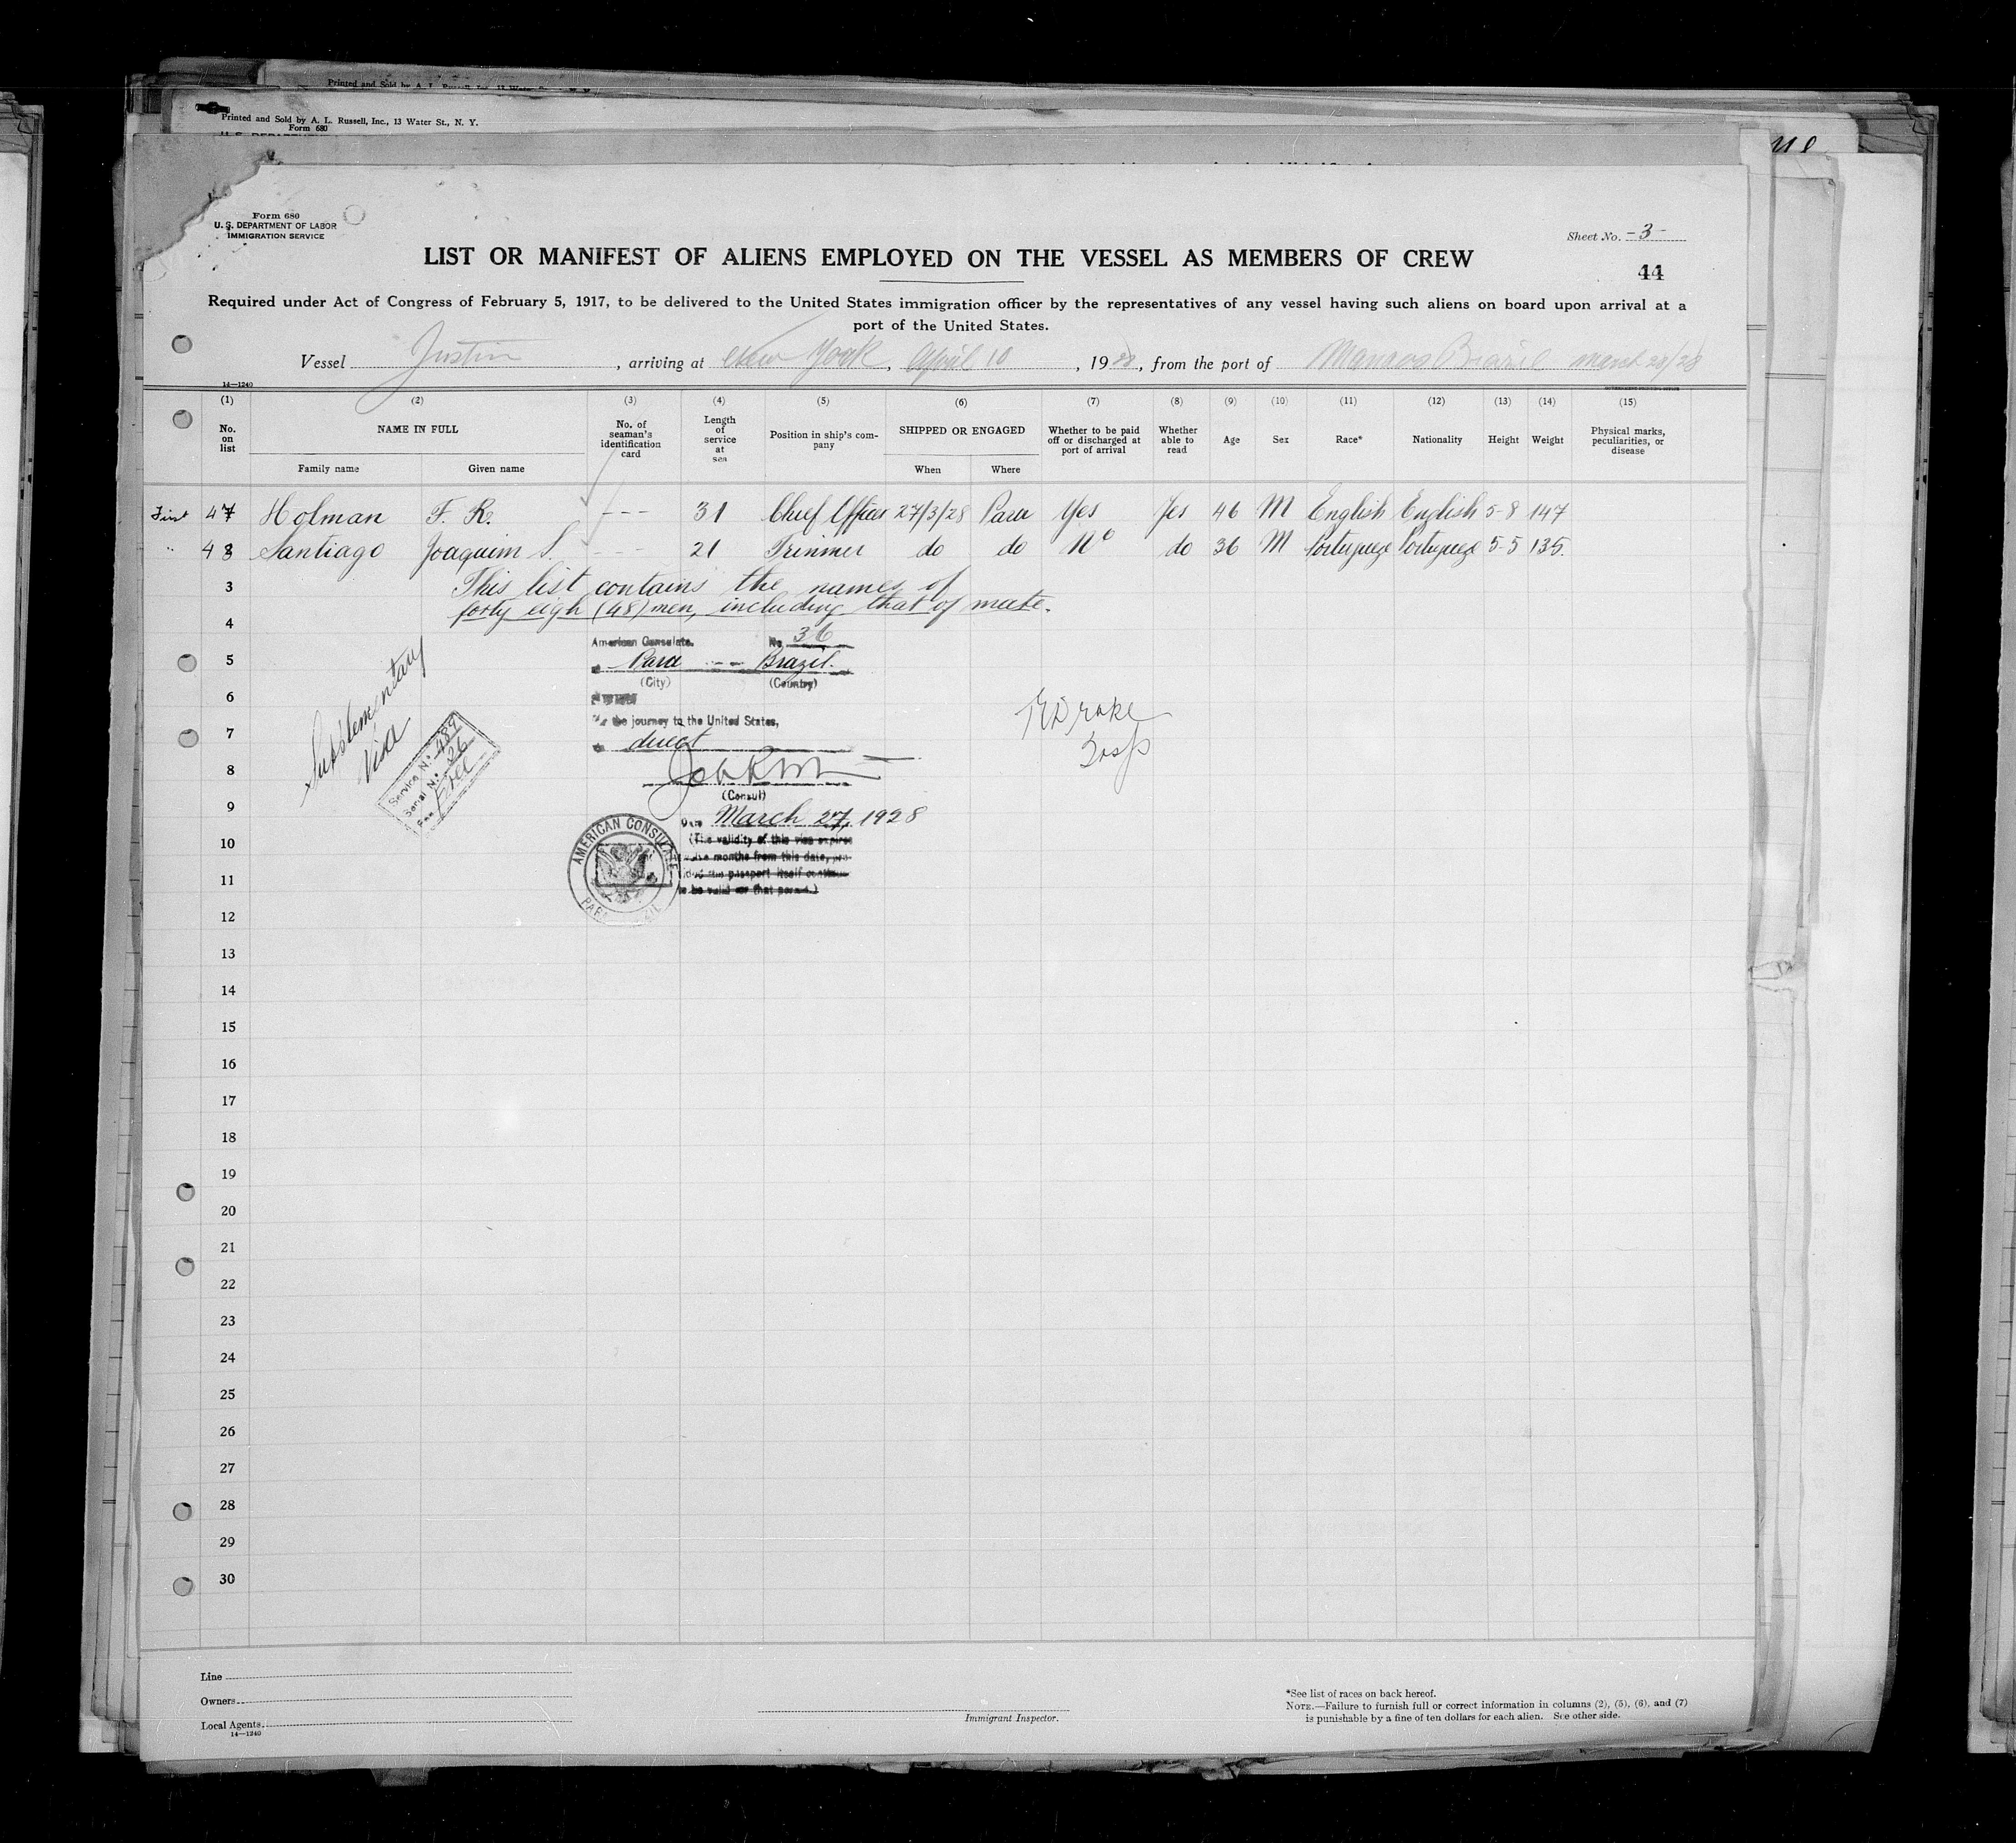 Printed and Sold by A. L. Russell, Inc., 13 Water St., N. Y.
Form 680
Form 680
U. S. DEPARTMENT OF LABOR
IMMIGRATION SERVICE
Sheet No. -3-
LIST OR MANIFEST OF ALIENS EMPLOYED ON THE VESSEL AS MEMBERS OF CREW
44
Required under Act of Congress of February 5, 1917, to be delivered to the United States immigration officer by the representatives of any vessel having such aliens on board upon arrival at a
port of the United States.
Vessel Justin, arriving at New York, April 10, 1928, from the port of Manaos Brazil march 20/28
14—1240
(1) (2) (3) (4) (5) (6) (7) (8) (9) (10) (11) (12) (13) (14) (15)
No. on list NAME IN FULL No. of seaman's identification card Length of service at sea Position in ship's company SHIPPED OR ENGAGED Whether to be paid off or discharged at port of arrival Whether able to read Age Sex Race* Nationality Height Weight Physical marks, peculiarities, or disease
Family name Given name When Where
First 47 Holman F. R. --- 31 Chief Officer 27/3/28 Para Yes Yes 46 M English English 5-8 147
" 48 Santiago Joaquim S. --- 21 Trimmer do do No do 36 M Portuguese Portuguese 5-5 135.
3 This list contains the names of
4 forty eigh (48) men, including that of mate.
American Consulate. No. 36
5 at Para -- Brazil.
(City) (Country)
6
7 For the journey to the United States,
direct
8
(Consul)
9 Date March 27, 1928
10 (The validity of this visa expires
twelve months from this date, pro-
11 vided the passport itself continues
to be valid for that period.)
Supplementary
Visa
Service No. 489
Serial No. 36
Fee Free
AMERICAN CONSULATE
PARA, BRAZIL
RDrake
Insp
12
13
14
15
16
17
18
19
20
21
22
23
24
25
26
27
28
29
30
Line
Owners
Local Agents
14—1240
Immigrant Inspector.
*See list of races on back hereof.
NOTE.—Failure to furnish full or correct information in columns (2), (5), (6), and (7)
is punishable by a fine of ten dollars for each alien. See other side.